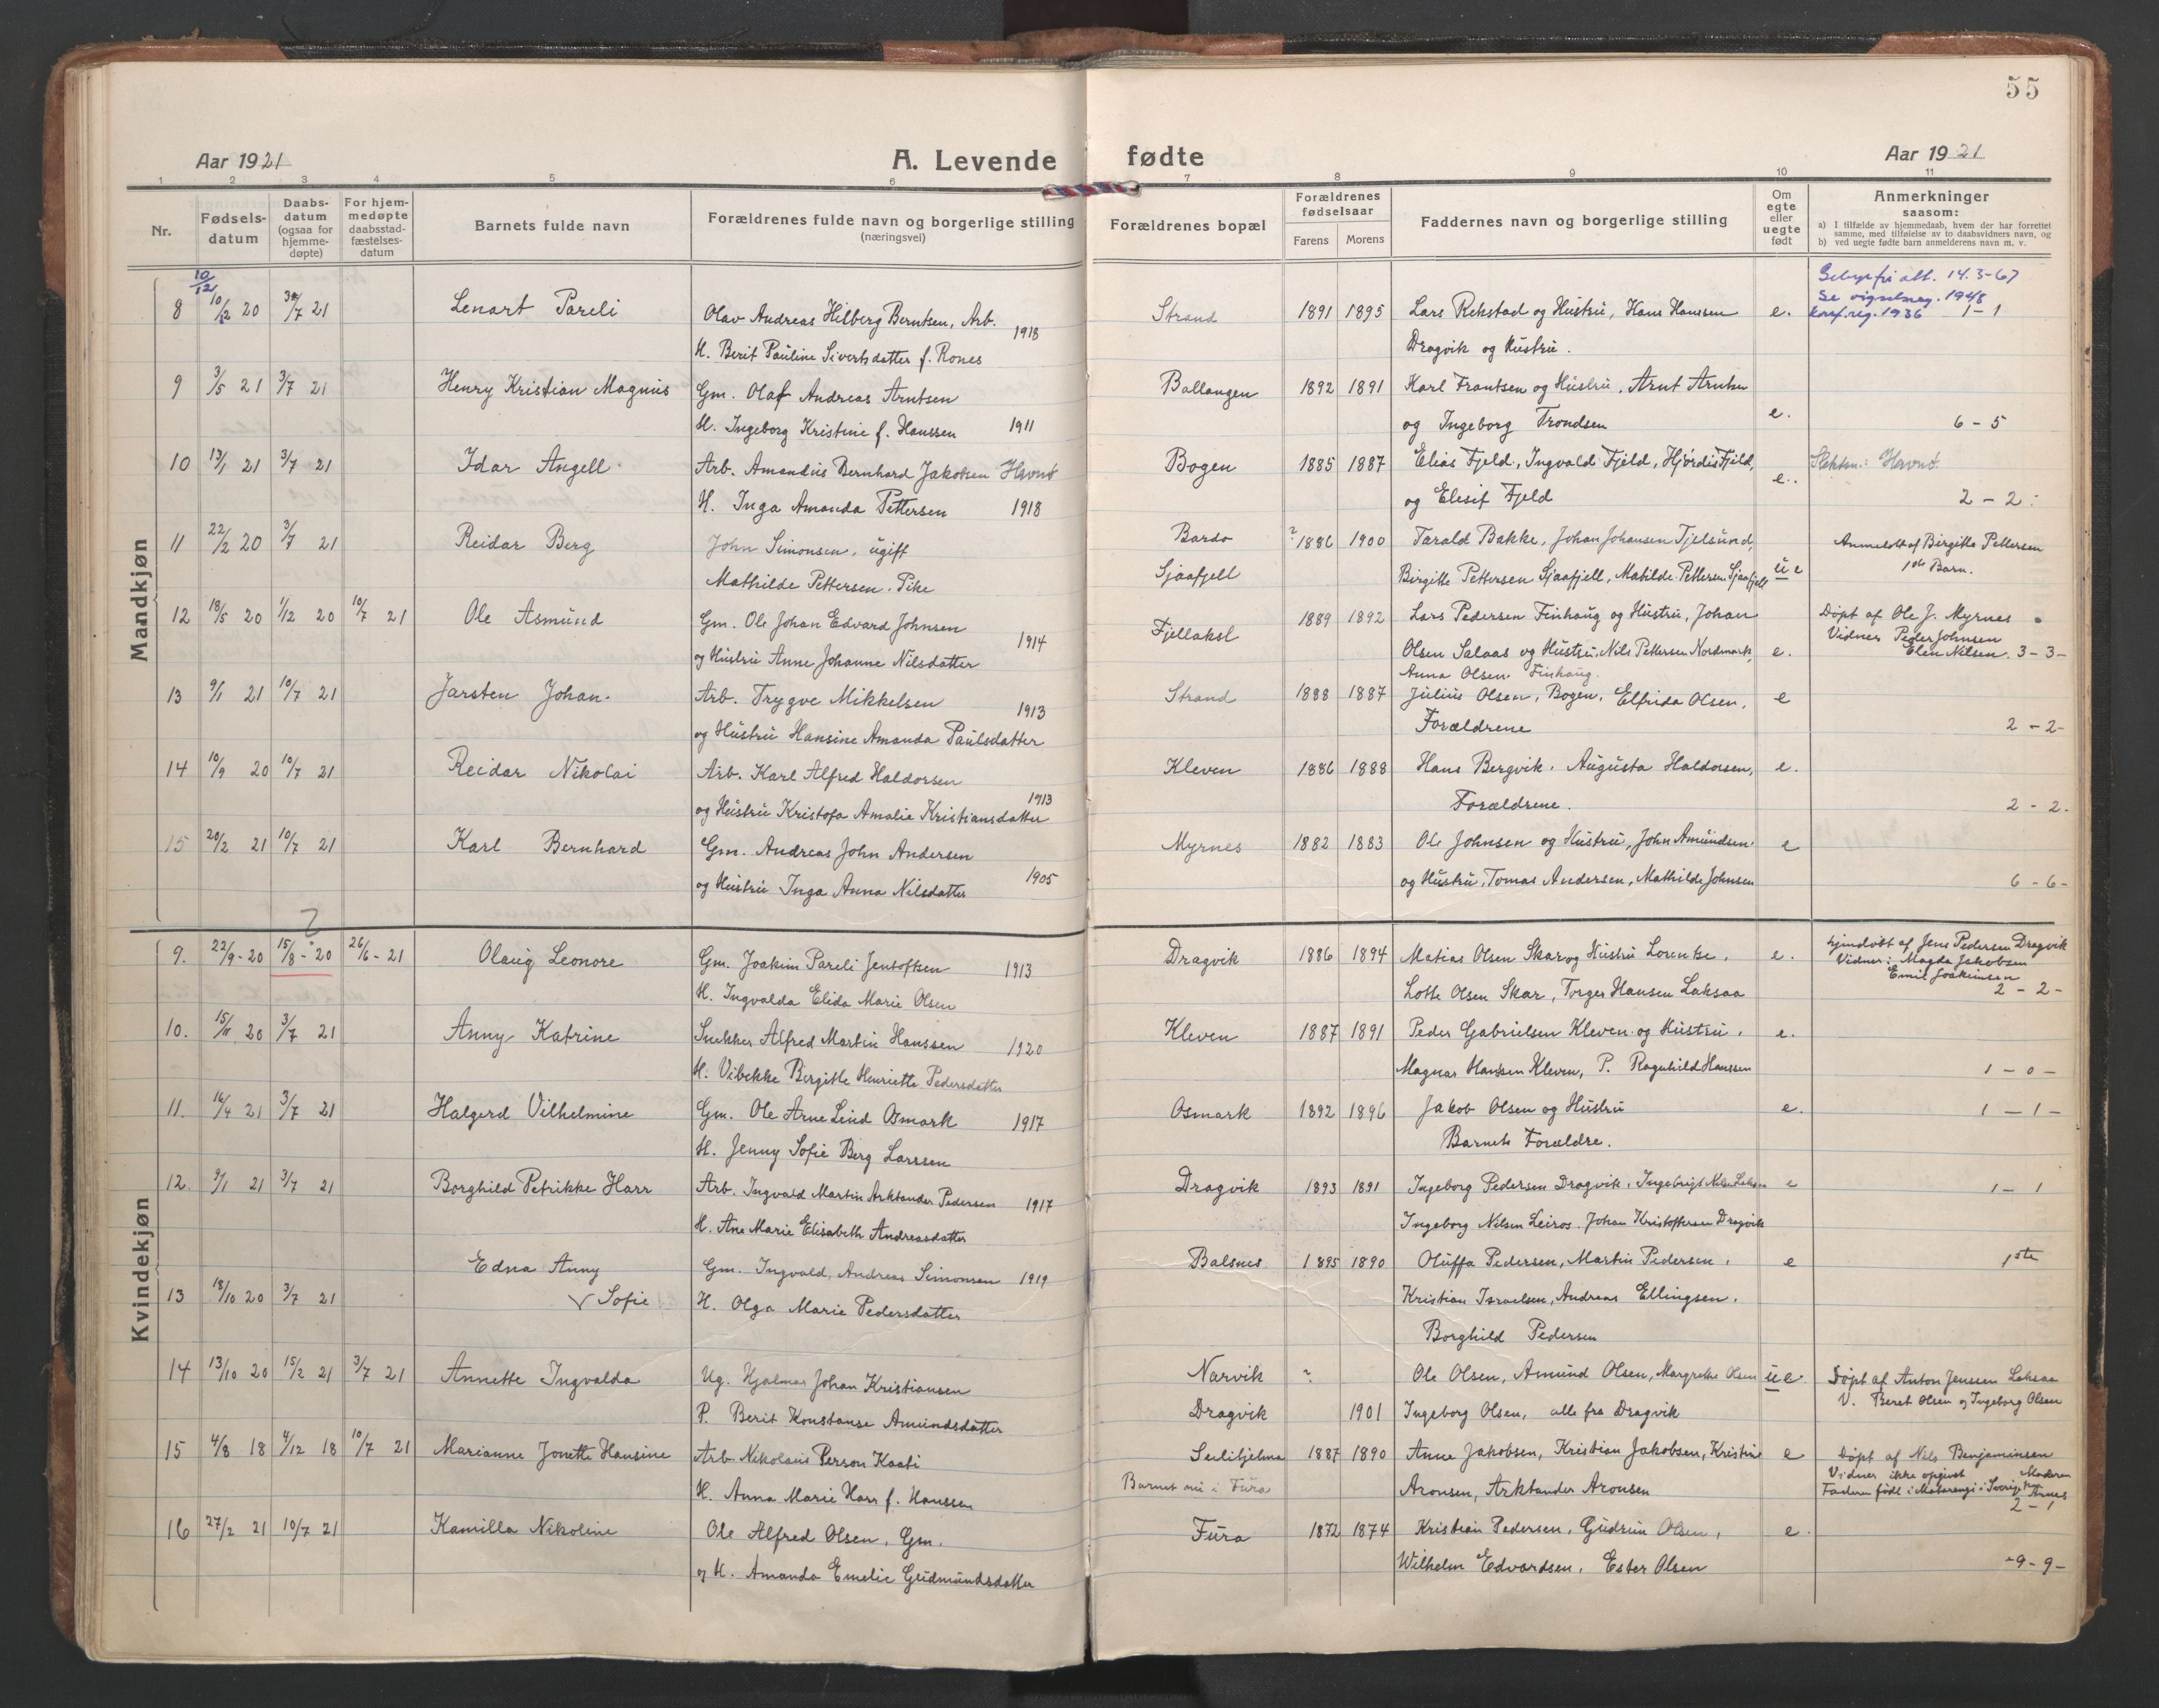 55
Aar 1921
A. Levende fødte
Aar 1921
1 2 3 4 5 6 7 8 9 10 11
Nr.
Fødsels-datum
Daabs-datum (ogsaa for hjemme-døpte)
For hjem-medøpte daabsstad-fæstelses-datum
Barnets fulde navn
Forældrenes fulde navn og borgerlige stilling
(næringsvei)
Forældrenes bopæl
Forældrenes fødselsaar
Farens Morens
Faddernes navn og borgerlige stilling
Om egte eller uegte født
Anmerkninger
saasom:
a) I tilfælde av hjemmedaab, hvem der har forrettet samme, med tilføielse av to daabsvidners navn, og
b) ved uegte fødte barn anmelderens navn m. v.
Mandkjøn
10/12 14.3-67
Se vigselreg. 1948
8 10/12 20 3/7 21 Lenart Pareli Olav Andreas Hilberg Berntsen, Arb. 1918 Strand 1891 1895 Lars Rekstad og Hustru, Hans Hanssen e. konf.reg. 1936 1-1
H. Berit Pauline Sivertsdatter f. Rones Dragvik og Hustru.
9 3/5 21 3/7 21 Henry Kristian Magnus Gm. Olaf Andreas Arntsen Ballangen 1892 1891 Karl Frantsen og Hustru, Arnt Arntsen
H. Ingeborg Kristine f. Hanssen 1911 og Ingeborg Trondsen e. 6-5
10 13/1 21 3/7 21 Idar Angell. Arb. Amandus Bernhard Jakobsen Havnø Bogen 1885 1887 Elias Fjeld, Ingvald Fjeld, Hjördis Fjeld, e. Slektsn: Havnø
H. Inga Amanda Pettersen 1918 og Elisif Fjeld 2-2
11 22/2 20 3/7 21 Reidar Berg John Simonsen, ugift Bardo ? 1886 1900 Tarald Bakke, Johan Johansen Tjelsund, Anmeldt af Birgitte Pettersen
Mathilde Pettersen. Pike Sjaafjell Birgitte Pettersen Sjaafjell, Matilde Pettersen Sjaafjell ue 1ste Barn.
12 18/5 20 1/12 20 10/7 21 Ole Asmund Gm. Ole Johan Edvard Johnsen 1914 Fjellaksl 1889 1892 Lars Pedersen Finhaug og Hustru, Johan Döpt af Ole J. Myrnes
og Hustru Anne Johanne Nilsdatter Olsen Salaas og Hustru, Nils Pettersen Nordmark, e. Vidner Peder Johnsen
Anna Olsen Finhaug. Elen Nilsen. 3-3-
13 9/1 21 10/7 21 Jarsten Johan. Arb. Trygve Mikkelsen 1913 Strand 1888 1887 Julius Olsen, Bogen, Elfrida Olsen, e
og Hustru Hansine Amanda Paulsdatter Forældrene 2-2-
14 10/9 20 10/7 21 Reidar Nikolai Arb. Karl Alfred Haldorsen 1913 Kleven 1886 1888 Hans Bergvik. Augusta Haldorsen, e.
og Hustru Kristofa Amalie Kristiansdatter Forældrene. 2-2-
15 20/2 21 10/7 21 Karl Bernhard Gm. Andreas John Andersen Myrnes 1882 1883 Ole Johnsen og Hustru, John Amundsen e
og Hustru Inga Anna Nilsdatter 1905 og Hustru, Tomas Andersen, Mathilde Johnsen 6-6-
Kvindekjøn
?
9. 22/9-20 15/8-20 26/6-21 Olaug Leonore Gm. Joakim Pareli Jentoftsen 1913 Dragvik 1886 1894 Matias Olsen Skar og Hustru Lorentse, e. hjemdöbt af Jens Pedersen Dragvik
Vidner: Magda Jakobsen
Emil Joakimsen
H. Ingvalda Elida Marie Olsen Lotte Olsen Skar, Torger Hansen Laksaa 2-2-
10. 15/11 20 3/7 21 Anny Katrine Snekker Alfred Martin Hanssen 1920 Kleven 1887 1891 Peder Gabrielsen Kleven og Hustru, e.
H. Vibekke Bergitte Henriette Pedersdatter Magnar Hanssen Kleven, P. Ragnhild Hanssen 1-0-
11. 16/4 21 3/7 21 Halgerd Vilhelmine Gm. Ole Arne Leind Osmark 1917 Osmark 1892 1896 Jakob Olsen og Hustru e. 1-1-
H. Jenny Sofie Berg Larssen Barnets Forældre.
12. 9/1 21 3/7 21 Borghild Petrikke Harr Arb. Ingvald Martin Arktander Pedersen 1917 Dragvik 1893 1891 Ingeborg Pedersen Dragvik, Ingebrigt Nilsen Laksaa e 1-1
H. Ane Marie Elisabeth Andreasdatter Ingeborg Nilsen Leiros. Johan Kristoffersen Dragvik
13 18/10 20 3/7 21 Edna Anny Sofie Gm. Ingvald Andreas Simonsen 1919 Balsnes 1895 1890 Oluffa Pedersen, Martin Pedersen, e 1ste
H. Olga Marie Pedersdatter Kristian Israelsen, Andreas Ellingsen,
Borghild Pedersen
14 13/10 20 15/2 21 3/7 21 Annette Ingvalda Ug. Hjalmar Johan Kristiansen Narvik ? Ole Olsen, Amund Olsen, Margrethe Olsen ue Döpt af Anton Jenssen Laksaa
P. Berit Konstanse Amundsdatter Dragvik 1901 Ingeborg Olsen, alle fra Dragvik V. Beret Olsen og Ingeborg Olsen
15 4/8 18 4/12 18 10/7 21 Marianne Jonette Hansine Arb. Nikolaus Person Kaati Sulitjelma 1887 1890 Anne Jakobsen, Kristian Jakobsen, Kristine e Döpt af Nils Benjaminsen
Vidner ikke opgivet
H. Anna Marie Harr f. Hanssen Barnet nu i Fura Aronsen, Arktander Aronsen Faderen född i Matarengi i Sverige Moderen Arnes
2-1
16 27/2 21 10/7 21 Kamilla Nikoline Ole Alfred Olsen, Gm. Fura 1872 1874 Kristian Pedersen, Gudrun Olsen, e.
og H. Amanda Emelie Gudmundsdatter Wilhelm Edvardsen, Ester Olsen -9-9-